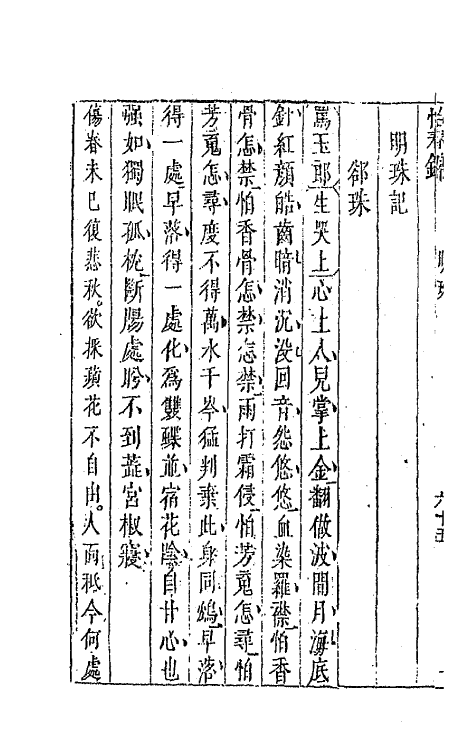 怡春錦
明珠
六十五
明珠記
郤珠
罵玉郎生哭上心上人見掌上金翻做波間月海底
針紅顏皓齒暗消沉沒回音怨悠悠血染羅襟怕香
骨怎禁怕香骨怎禁怎禁雨打霜侵怕芳䰟怎尋怕
芳䰟怎尋度不得萬水千岑猛判棄此身同鴆早落
得一處早落得一處化爲雙蝶並宿花陰自甘心也
强如獨眠孤枕斷膓處盻不到蕊宮椒寢
傷春未已復悲秋欲採蘋花不自由人面秪今何處